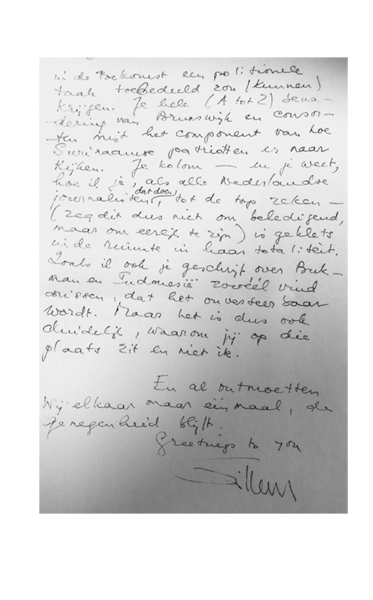 in de toekomst een politionele
taak toebedeeld zou (kunnen)
krijgen. Je hele (A tot Z) bena-
dering van Brunswijk en consor-
ten mist het component van hoe
Surinaamse patriotten er naar
kijken. Je kolom — en je weet,
hoe il je, als alle Nederlandse
journalisten, dat doen, tot de top reken —
(zeg dit dus niet om beledigend,
maar om eerlijk te zijn) is geklets
in de ruimte in haar totaliteit.
Zoals il ook je geschrijf over Buk-
man en Indonesië zoveel vind
missen, dat het onverteerbaar
wordt. Maar het is dus ook
duidelijk, waarom jij op die
plaats zit en niet ik.
En al ontmoetten
wij elkaar maar één maal, de
genegenheid blijft.
Greetings to you
Willem